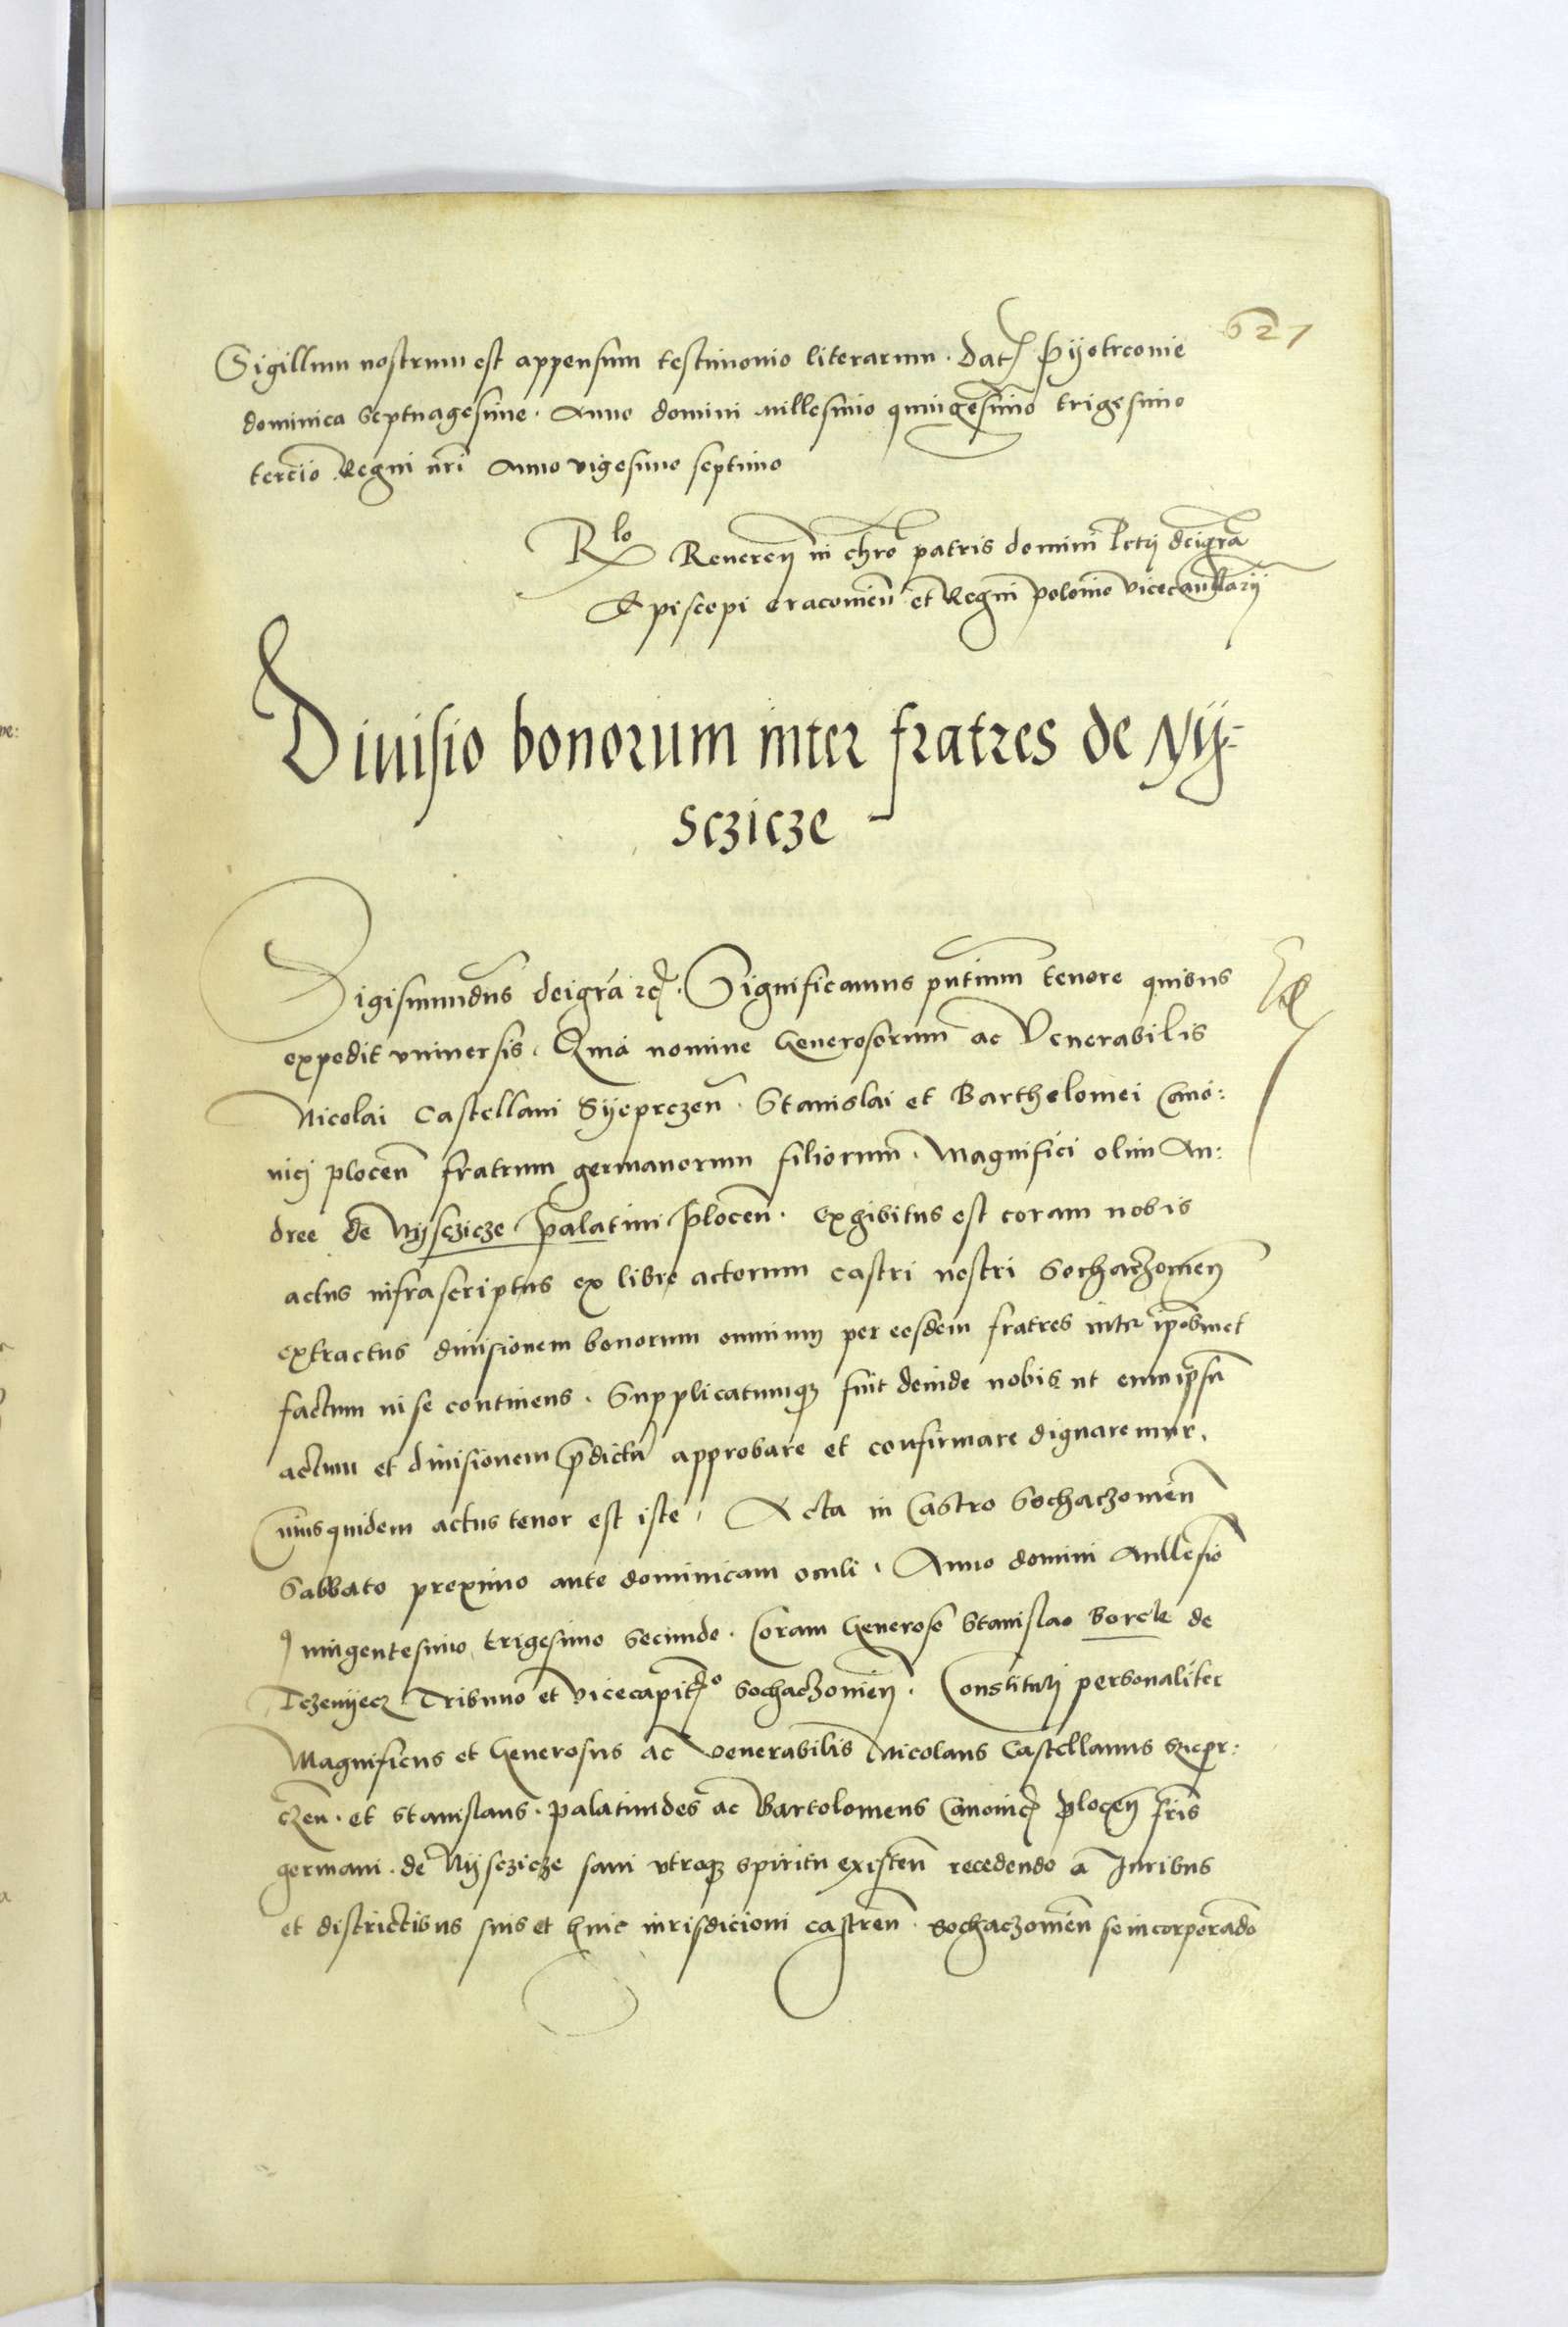 627
Sigillum nostrum est appensum testimonio literarum. Dat Pijotrcouie
dominica Septuagesime. Anno domini millesimo quingesimo trigesimo
tercio Regni nri Anno vigesimo septimo
Rlo Reueren in chro patris domini Petri deigra
Episcopi cracouien et Regni polonie vicecancellarij
Diuisio bonorum inter fratres de Nij-
sczicze
Sigismundus deigra rc. Significamus pntium tenore quibus
expedit vniuersis. Quia nomine Generosorum ac Venerabilis
Nicolai Castellani Sijeprczen. Stanislai et Barthelomei Cano:
nicj plocen fratrum germanorum filiorum. Magnifici olim An:
dree de Nijsczicze palatini plocen. exhibitus est coram nobis
actus infrascriptus ex libro actorum castri nostri Sochaczouien
extractus diuisionem bonorum omnium per eosdem fratres inter iposmet
factum in se continens. Supplicatumque fuit deinde nobis ut eum ipsu
actum et diuisionem predicta approbare et confirmare dignaremur.
Cuius quidem actus tenor est iste. Acta in Castro Sochaczouien
Sabbato proximo ante dominicam oculi. Anno domini Millesio
quingentesimo trigesimo Secundo. Coram Generoso Stanislao Borek de
Tczenijecz Tribuno et vicecapit Sochaczouien. Constituti personaliter
Magnificus et Generosus ac venerabilis Nicolaus Castellanus Szepr:
czen. et Stanislaus. palatinides ac Bartolomeus Canonic plocen fris
germani. de Nijsczicze sani vtroque spiritu existen recedendo a Juribus
et districtibus suis et huic iurisdicioni castren. Sochaczouien se incorporado